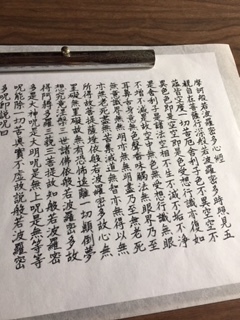 摩訶般若波羅蜜多心經
觀自在菩薩行深般若波羅蜜多時照見五
蘊皆空度一切苦厄舍利子色不異空空不
異色色即是空空即是色受想行識亦復如
是舍利子是諸法空相不生不滅不垢不淨
不增不減是故空中無色無受想行識無眼
耳鼻舌身意無色聲香味觸法無眼界乃至
無意識界無無明亦無無明盡乃至無老死
亦無老死盡無苦集滅道無智亦無得以無
所得故菩提薩埵依般若波羅蜜多故心無
罣礙無罣礙故無有恐怖遠離一切顛倒夢
想究竟涅槃三世諸佛依般若波羅蜜多故
得阿耨多羅三藐三菩提故知般若波羅蜜
多是大神呪是大明呪是無上呪是無等等
呪能除一切苦真實不虛故說般若波羅蜜
多呪即說呪曰